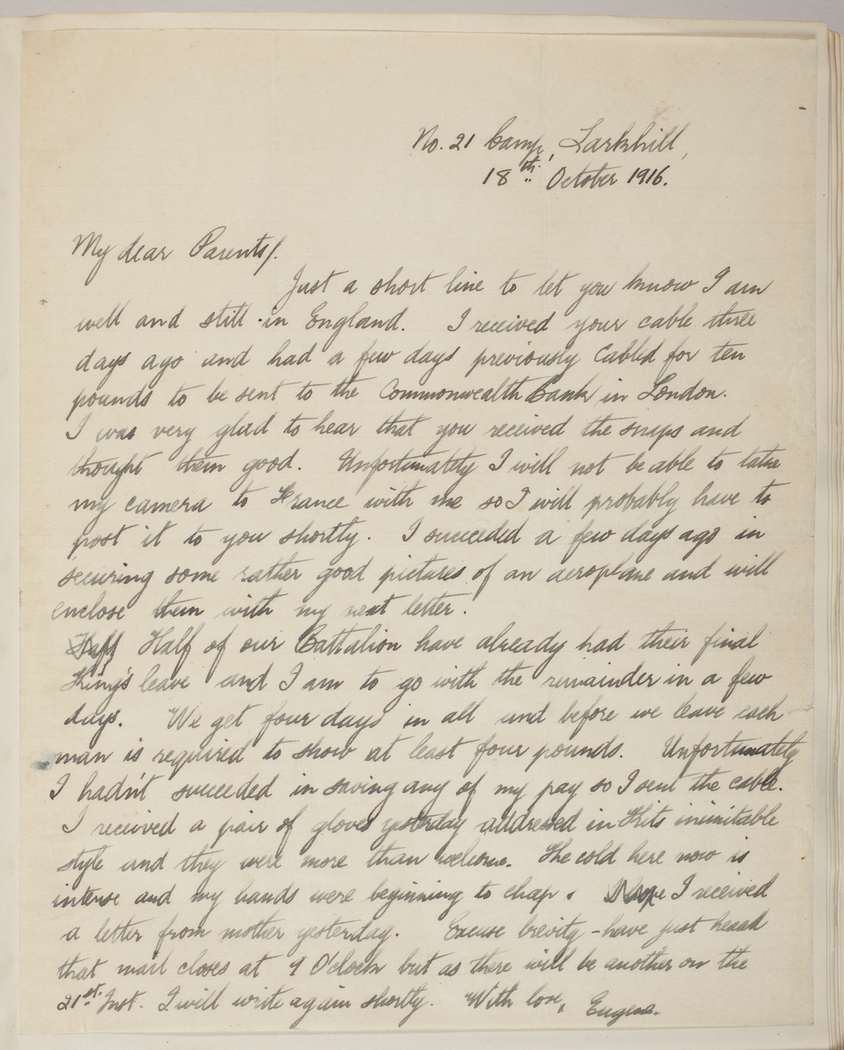 No. 21 Camp, Larkhill,
18th. October 1916.
My dear Parents/.
Just a short line to let you know I am
well and still in England. I received your cable three
days ago and had a few days previously cabled for ten
pounds to be sent to the Commonwealth Bank in London.
I was very glad to hear that you received the snaps and
thought them good. Unfortunately I will not be able to take
my camera to France with me so I will probably have to
post it to you shortly. I succeeded a few days ago in
securing some rather good pictures of an aeroplane and will
enclose them with my next letter.
Half Half of our Battalion have already had their final
King's leave and I am to go with the remainder in a few
days. We get four days in all and before we leave each
man is required to show at least four pounds. Unfortunately
I hadn't succeeded in saving any of my pay so I sent the cable.
I received a pair of gloves yesterday addressed in Kits inimitable
style and they were more than welcome. The cold here now is
intense and my hands were beginning to chap. I received
a letter from mother yesterday. Excuse brevity - have just heard
that mail closes at 9 O'Clock but as there will be another on the
21st. Inst. I will write again shortly. With love, Eugene.